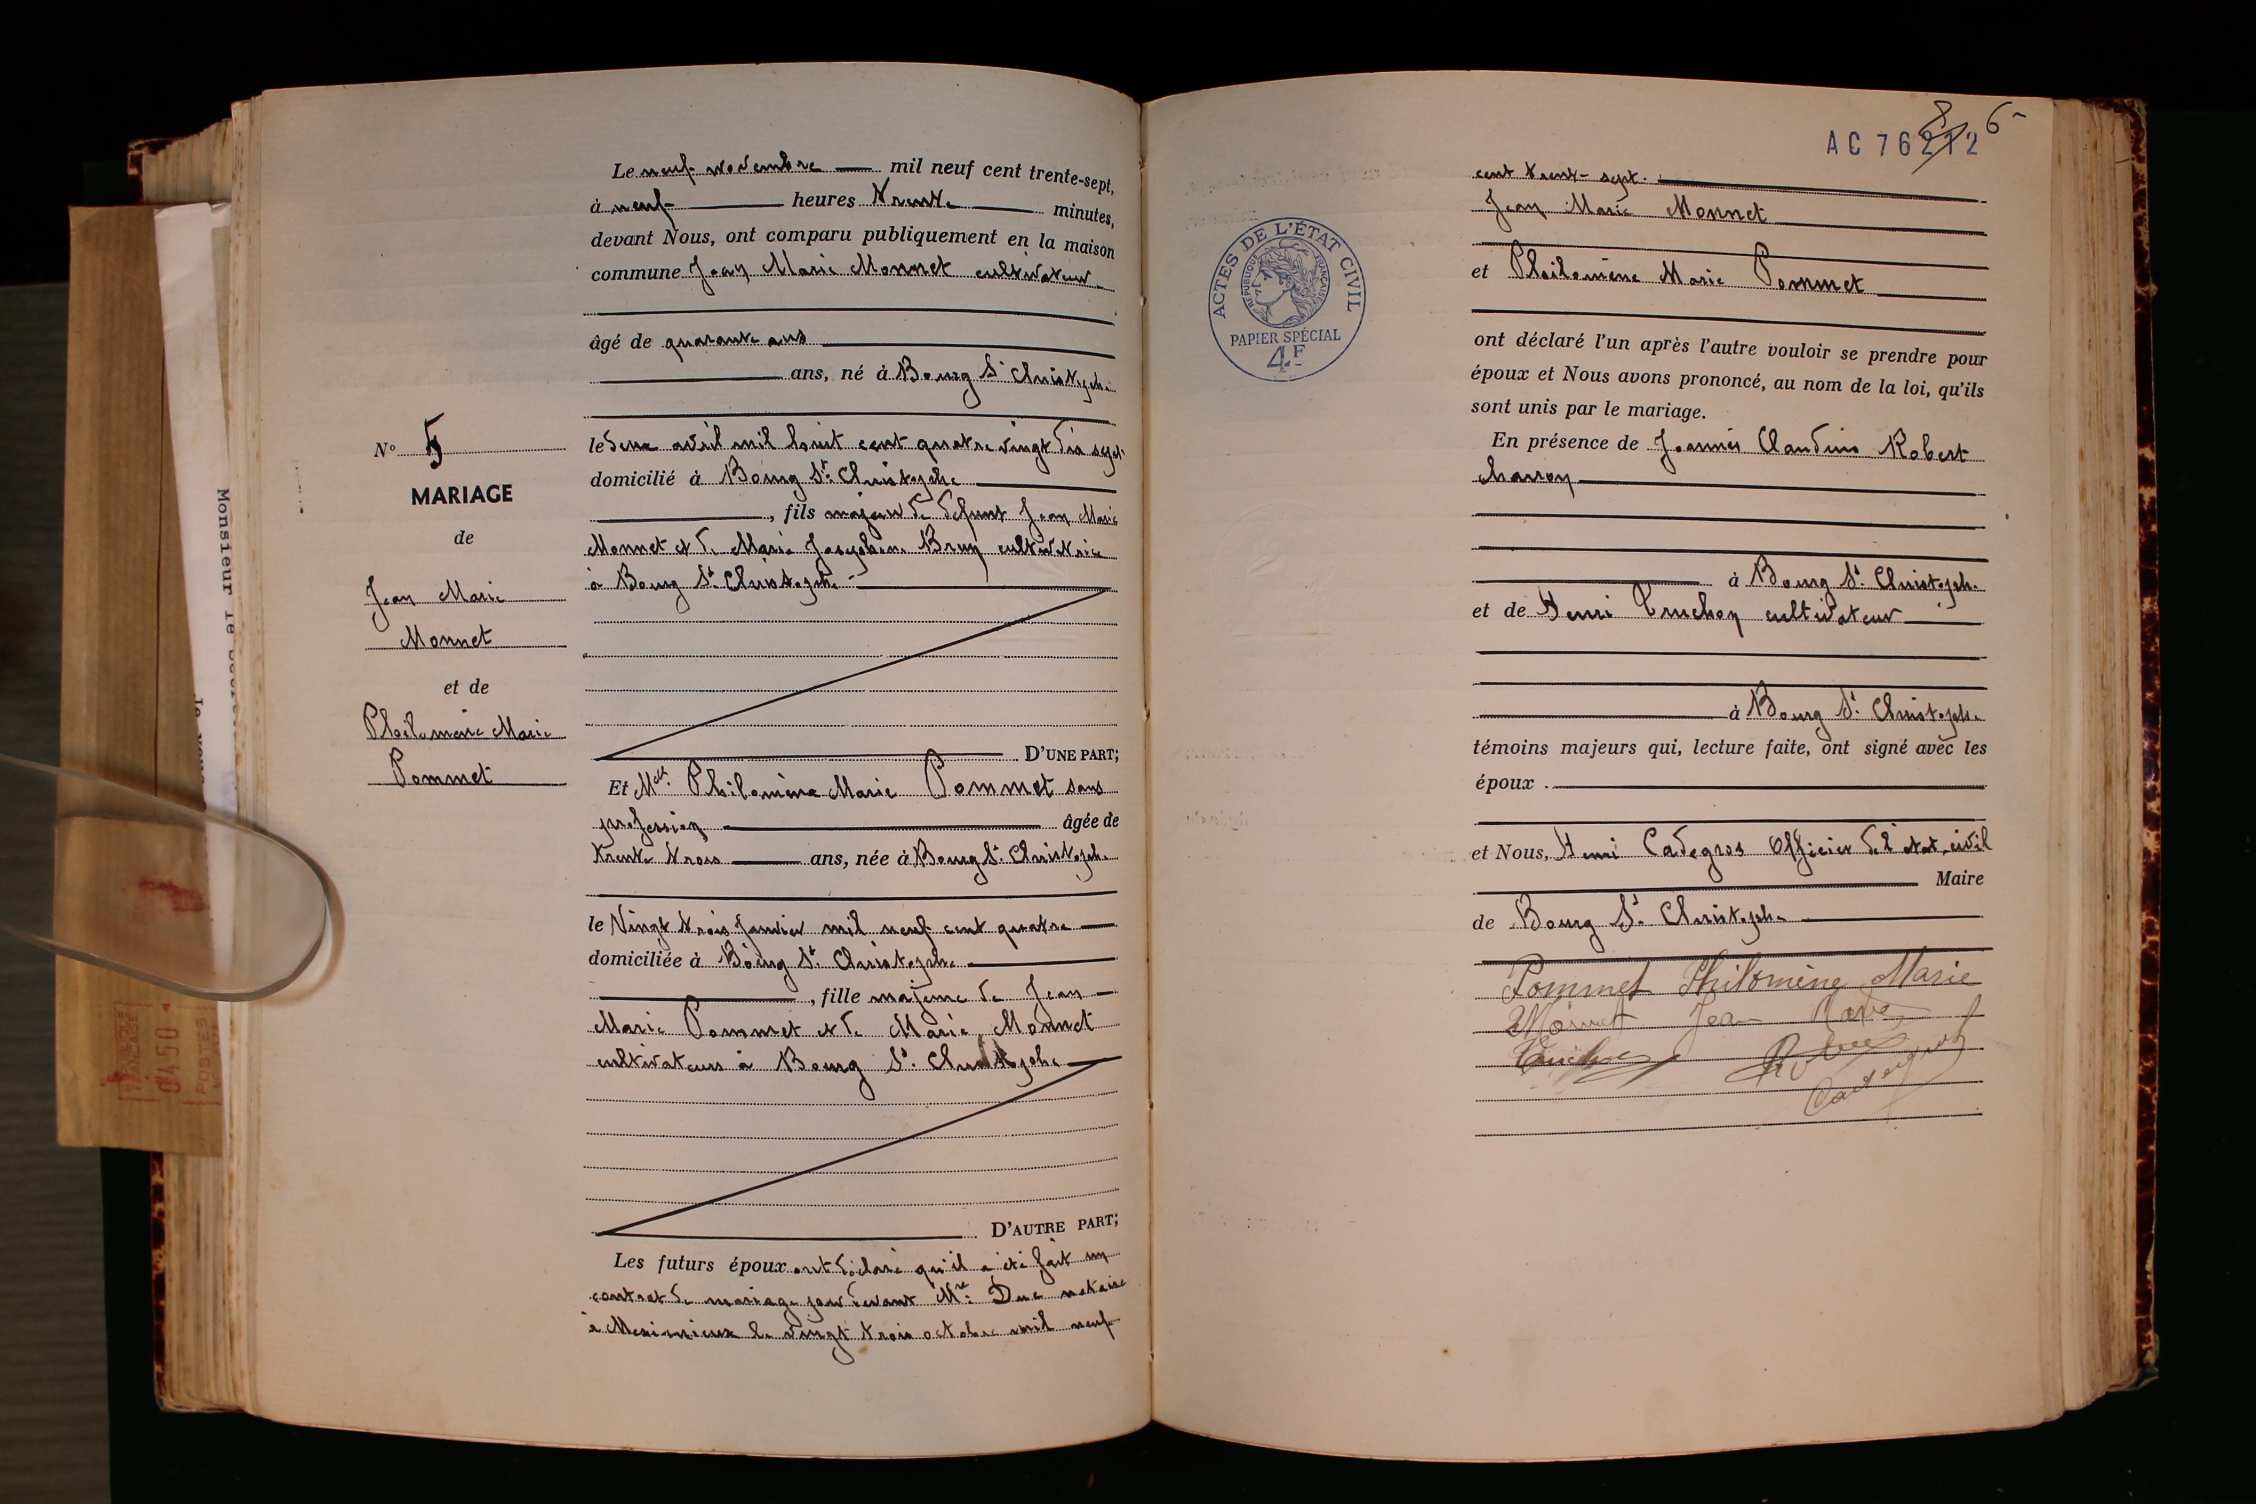 Le neuf novembre mil neuf cent trente-sept,
à neuf heures trente minutes,
devant Nous, ont comparu publiquement en la maison
commune Jean Marie Monnet cultivateur
âgé de quarante ans
ans, né à Bourg St Christophe
le deux avril mil huit cent quatre vingt dix sept
domicilié à Bourg St. Christophe
, fils majeur de défunt Jean Marie
Monnet et de Marie Josephine Brun cultivatrice
à Bourg St. Christophe
D'UNE PART;
Et Melle. Philomène Marie Pommet sans
profession âgée de
trente trois ans, née à Bourg St. Christophe
le Vingt trois janvier mil neuf cent quatre
domiciliée à Bourg St. Christophe
, fille majeure de Jean
Marie Pommet et de Marie Monnet
cultivateurs à Bourg St. Christophe
D'AUTRE PART;
Les futurs époux ont déclaré qu'il a été fait un
contrat de mariage par devant Me. Duc notaire
à Meximieux le vingt trois octobre mil neuf
No 5
MARIAGE
de
Jean Marie
Monnet
et de
Philomène Marie
Pommet
Monsieur le
0450
POSTES
AC 76212
8 6
cent trente-sept.
Jean Marie Monnet
et Philomène Marie Pommet
ont déclaré l'un après l'autre vouloir se prendre pour
époux et Nous avons prononcé, au nom de la loi, qu'ils
sont unis par le mariage.
En présence de Joannès Claudius Robert
charron
à Bourg St. Christophe
et de Henri Truchon cultivateur
à Bourg St. Christophe
témoins majeurs qui, lecture faite, ont signé avec les
époux.
et Nous, Henri Cadegros Officier de l'état civil
Maire
de Bourg St. Christophe
Pommet Philomène Marie
Monnet Jean Marie
Cadegros
ACTES DE L'ÉTAT CIVIL
RÉPUBLIQUE FRANÇAISE
PAPIER SPÉCIAL
4F